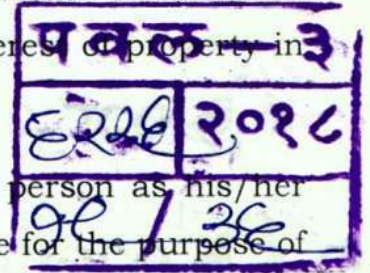 erest of property in
पवल - ३
२०१८
person as his/her
/
e for the purpose of